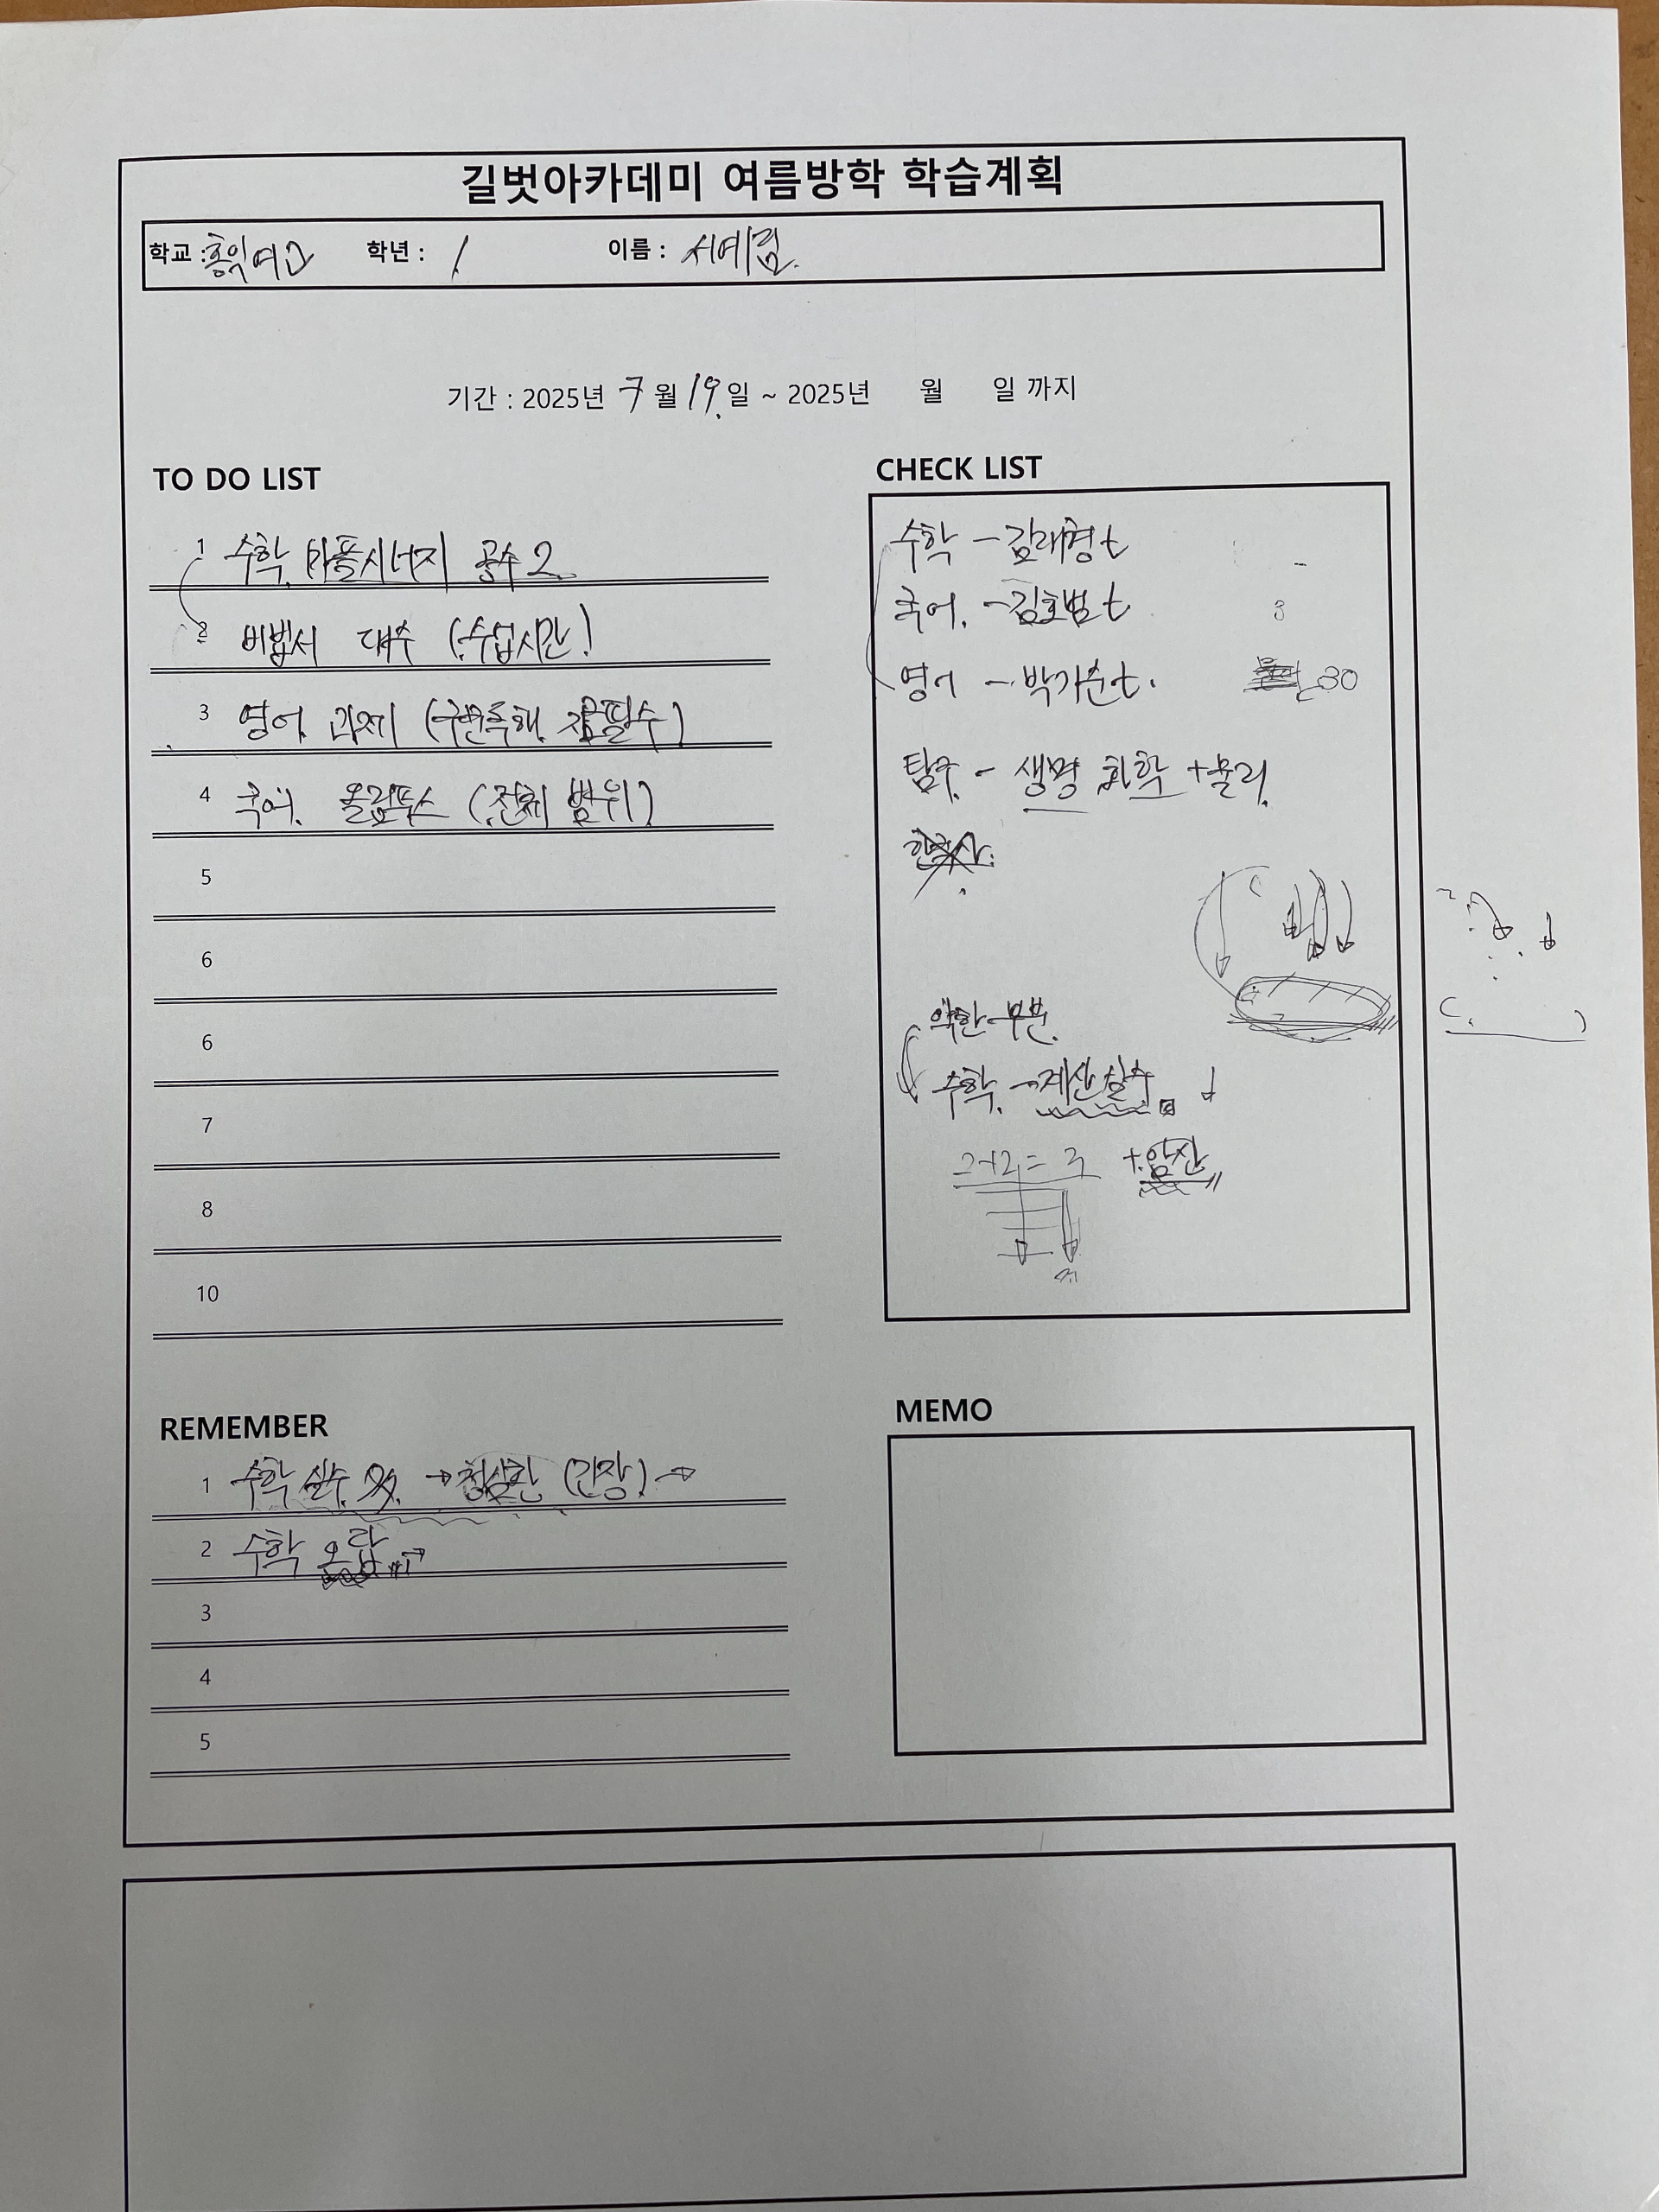 길벗아카데미 여름방학 학습계획
학교 : 홍익여고 학년 : 1 이름 : 서예림
기간 : 2025년 7월 19일 ~ 2025년 월 일 까지
TO DO LIST
1 수학 마플시너지 공수2
2 비법서 대수 (수업시간)
3 영어 과제 (구문독해
4 국어. 올림포스 (전체 범위)
5
6
6
7
8
10
CHECK LIST
수학 - 김래형t
국어. - 김호범t
영어 - 박가순t. 30
탐구 - 생명 화학 + 물리
한국사
약한 부분.
수학. → 계산실수
2+2=
+암산
REMEMBER
1 수학 실수 → (긴장) →
2 수학 오답
3
4
5
MEMO